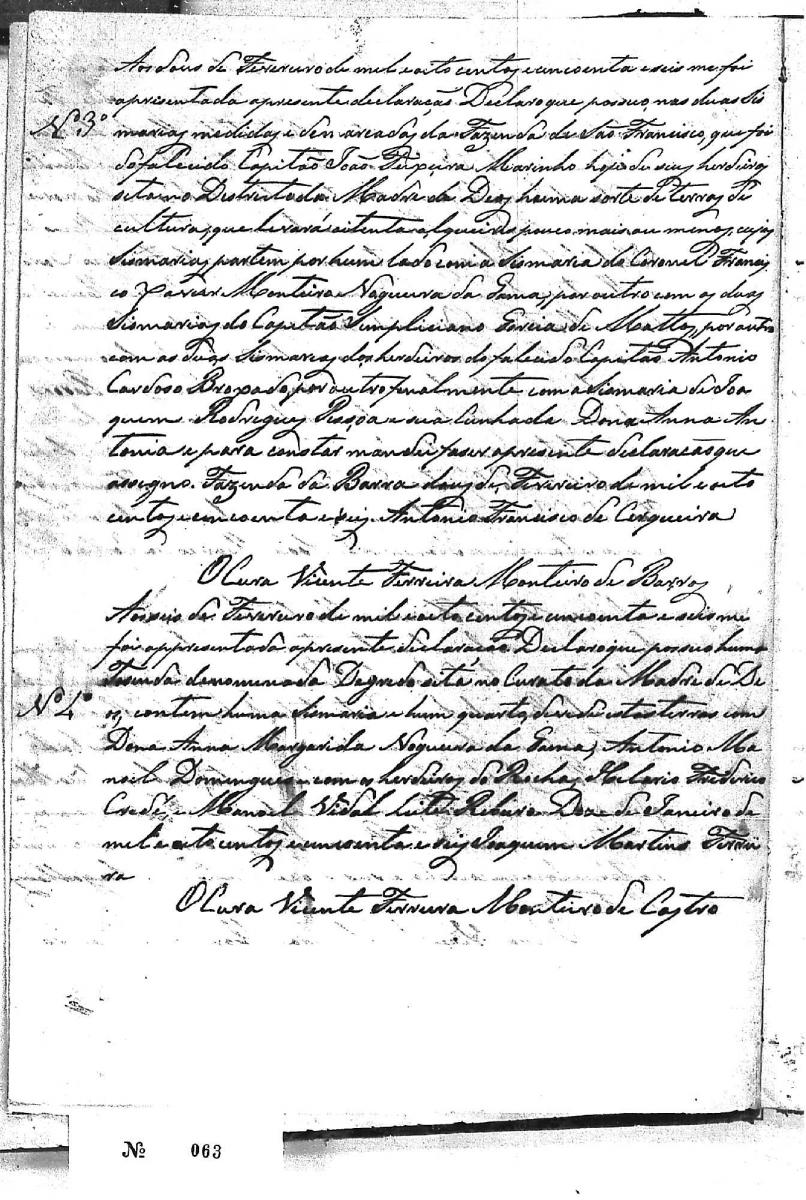 Aos dous de Fevereiro de mil e oito centos e cincoenta e seis me foi
apresentada a presente declaração Declaro que possuo, nas duas Sis
Nº 3º
marias medidas e demarcadas da Fazenda de São Francisco, que foi
do falecido Capitão João Pereira Marinho hoje de seus herdeiros
sita no Districto da Madre de Deos, huma sorte de terras de
cultura, que levará oitenta alqueires pouco mais ou menos, cujas
Sismarias partem por hum lado com a Sismaria do Coronel Francis
co Xavier Monteiro Nogueira da Gama, por outro com as duas
Sismarias do Capitão Simpliciano Garcia de Mattos, por outro
com as duas Sismarias dos herdeiros do falecido Capitão Antonio
Cardoso Broxado, por outro finalmente com a Sismaria de Joa
quim Rodrigues Pessoa e sua Cunhada Dona Anna An
tonia e para constar mandei faser a presente declaração que
assegno. Fazenda da Barra dous de Fevereiro de mil e oito
centos e cincoenta e seis Antonio Francisco de Cerqueira
O Cura Vicente Ferreira Monteiro de Barros
Aos seis de Fevereiro de mil e oito centos e cincoenta e seis me
foi appresentada a presente declaração Declaro que possuo huma
Nº 4º
Fasenda denomenada Degredo sita no Curato da Madre de De
os, contem huma Sismaria e hum quarto, devide estas terras com
Dona Anna Margarida Nogueira da Gama, Antonio Ma
noel Domingues com os herdeiros do Rocha, Helario Frederico
Credé, e Manoel Vidal Leite Ribeiro Doze de Janeiro de
mil e oito centos e cincoenta e seis Joaquim Martins Ferrei
ra
O Cura Vicente Ferreira Monteiro de Castro
Nº 063